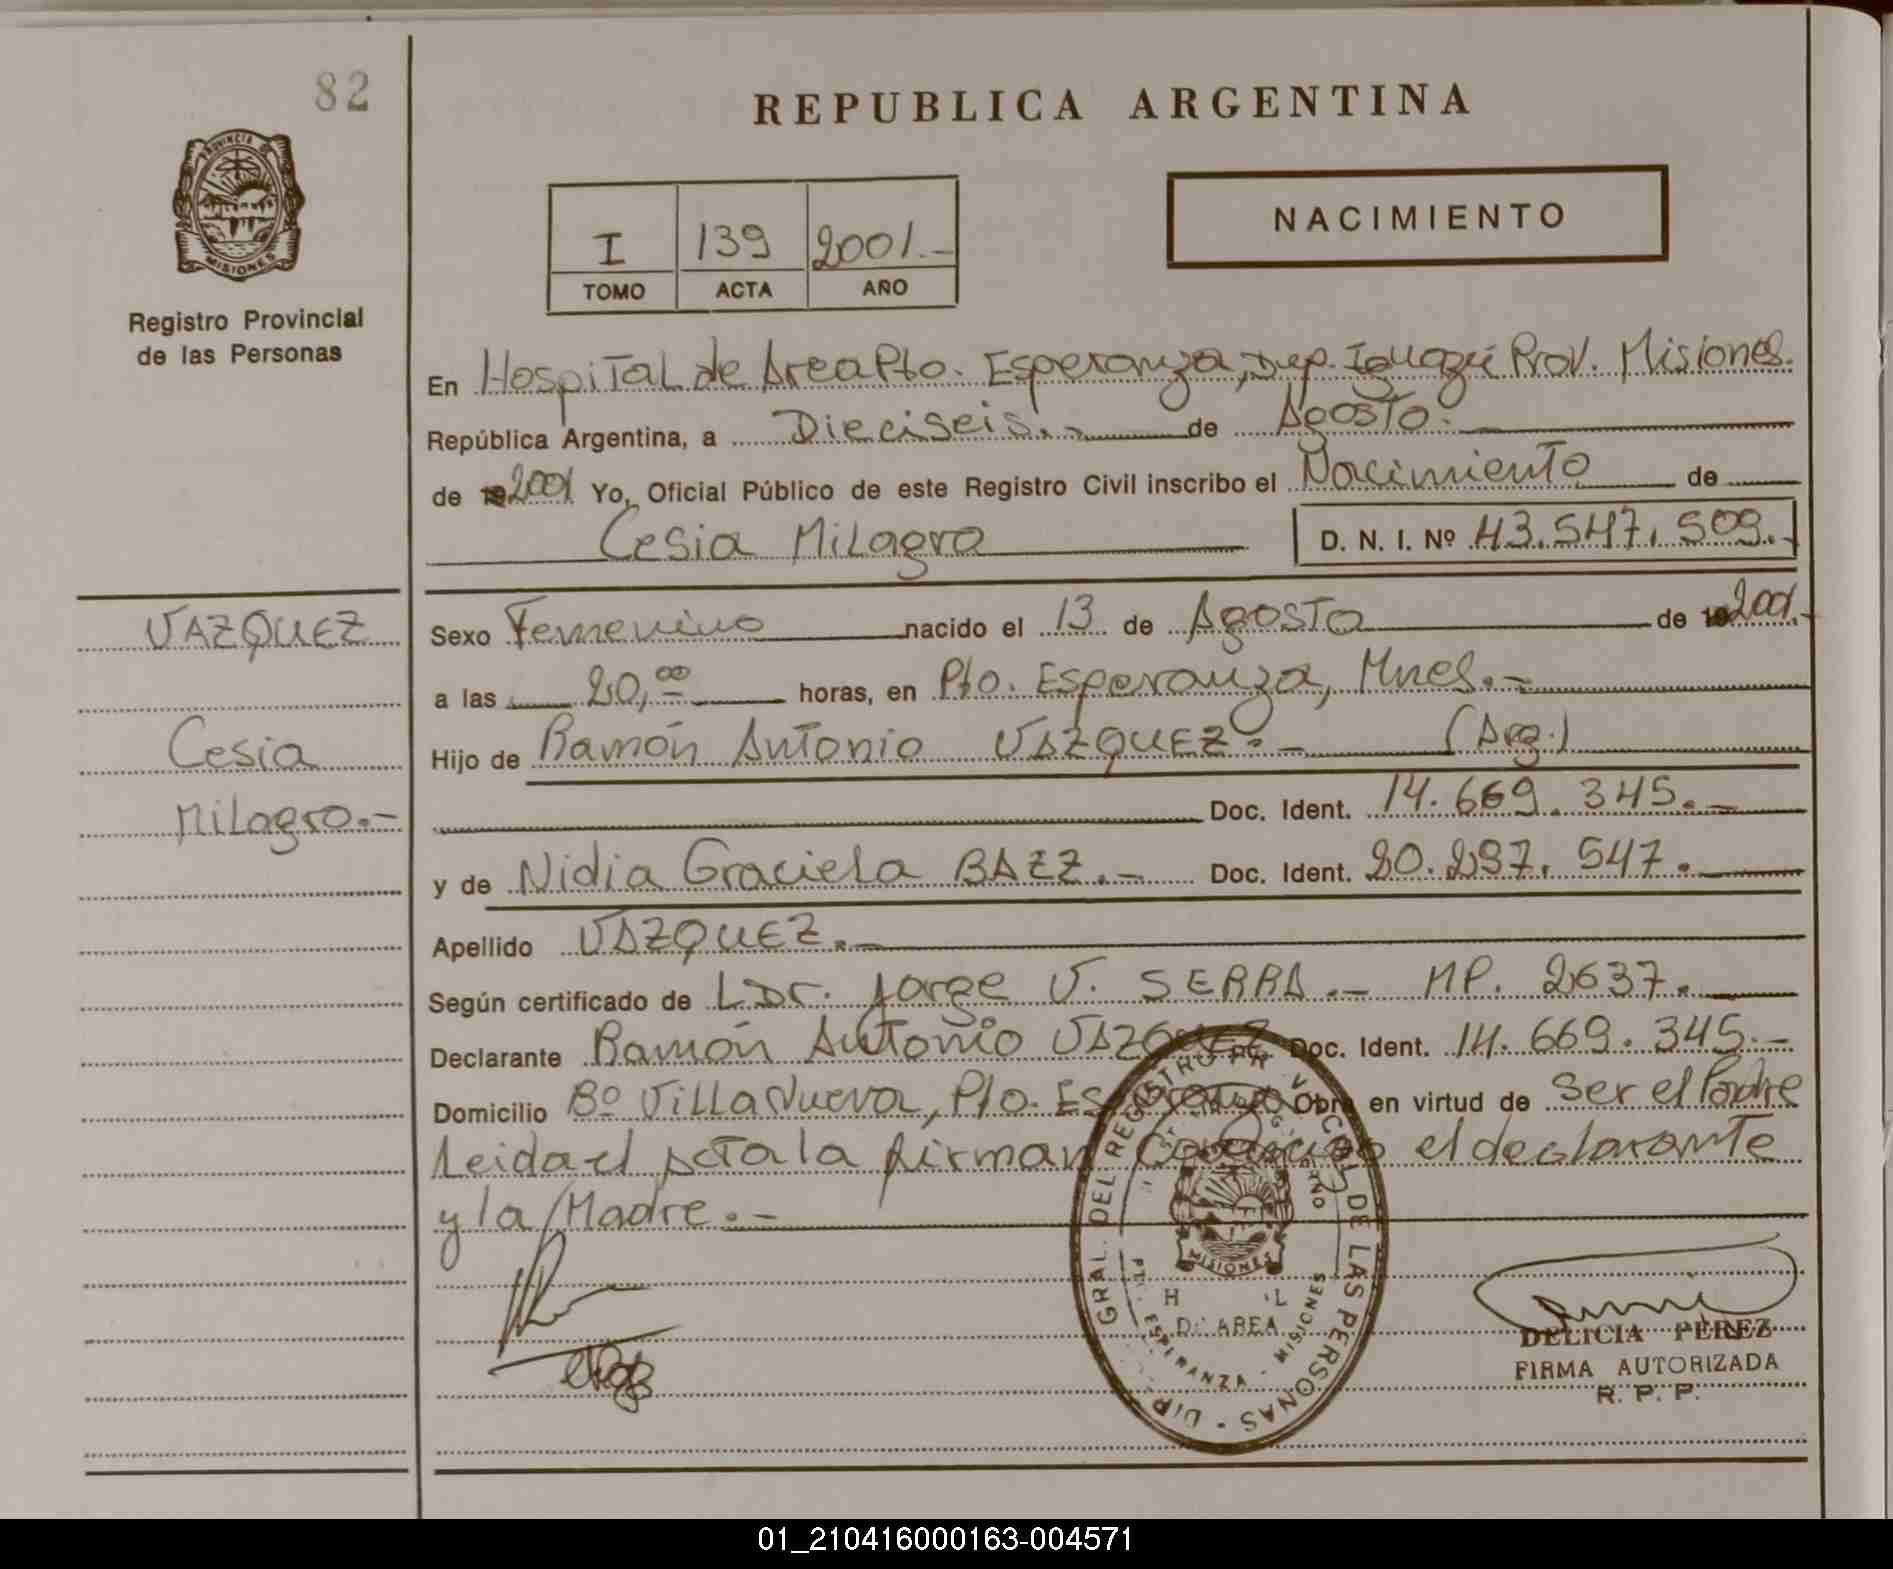 82
REPUBLICA ARGENTINA
PROVINCIA DE
MISIONES
Registro Provincial
de las Personas
I 139 2001.-
TOMO ACTA AÑO
NACIMIENTO
En Hospital de Area Pto. Esperanza, Dep. Iguazú Prov. Misiones.
República Argentina, a Dieciseis.- de Agosto.
de 2001 Yo, Oficial Público de este Registro Civil inscribo el Nacimiento de
Cesia Milagro D. N. I. Nº 43.547.509.-
VAZQUEZ
Cesia
Milagro.-
Sexo Femenino nacido el 13 de Agosto de 2001.-
a las 20,00 horas, en Pto. Esperanza, Mnes.-
Hijo de Ramón Antonio VAZQUEZ.- (Arg.)
Doc. Ident. 14.669.345.-
y de Nidia Graciela BAEZ.- Doc. Ident. 20.297.547.-
Apellido VAZQUEZ.-
Según certificado de Dr. Jorge V. SERRA.- MP. 2637.-
Declarante Ramón Antonio VAZQUEZ Doc. Ident. 14.669.345.-
Domicilio Bº Villa Nueva, Pto. Esperanza Obra en virtud de Ser el Padre
Leida el Acta la firman Conmigo el declarante
y la Madre.-
DIR. GRAL. DEL REGISTRO PROVINCIAL DE LAS PERSONAS
MISIONES
DE AREA
PTO. ESPERANZA - MISIONES
DELICIA PEREZ
FIRMA AUTORIZADA
R. P. P.
01_210416000163-004571